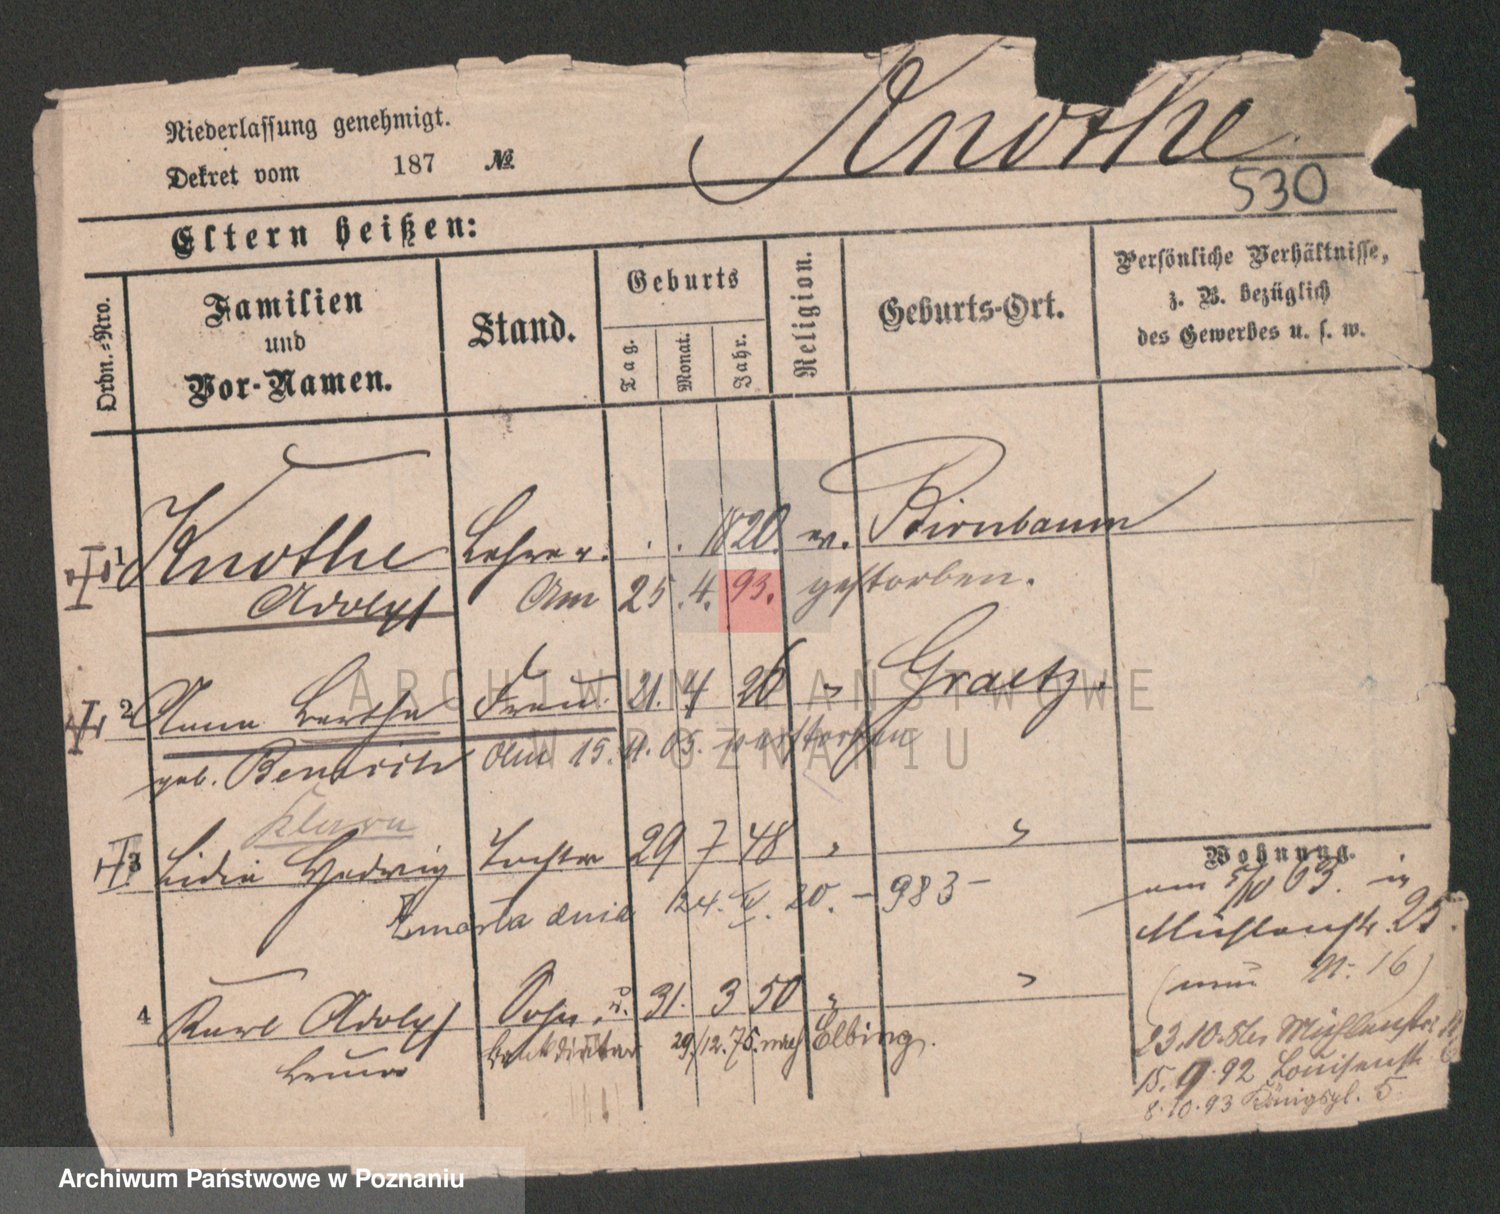 Niederlassung genehmigt.
Dekret vom 187 №
Knothe
530
Eltern heißen:
Ordn.-Nro.
Familien
und
Vor-Namen.
Stand.
Geburts
Tag.
Monat.
Jahr.
Religion.
Geburts-Ort.
Persönliche Verhältnisse,
z. B. bezüglich
des Gewerbes u. s. w.
1 Knothe Lehrer. . . 1820. ev. Birnbaum
Adolph Am 25.4.93. gestorben.
2 Anna Bertha Frau 21. 4 26 " Graetz.
geb. Am 15.11.05. verstorben
Klara
3 Lidia Hedwig Tochter 29 7 48 " "
Zmarła dnia 24. IV. 20. - 983 -
4 Karl Adolph Sohn, 31. 3 50 " "
Bruno 29./12.75. nach Elbing.
Wohnung.
am 5/10 63. in
Mühlenstr. 25.
(neue N. 16)
23.10. Mühlenstr.
15.9.92 Louisenstr.
8.10.93 Königspl. 5.
ARCHIWUM PAŃSTWOWE
W POZNANIU
Archiwum Państwowe w Poznaniu